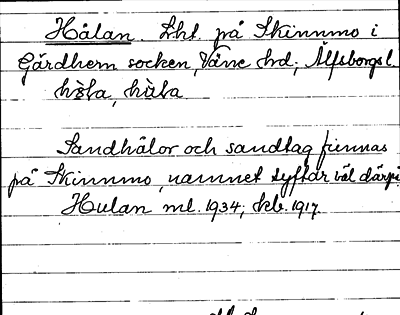 Hålan. Lht. på Skinnmo i
Gärdhem socken, Väne hd; Älfsborgs l.
hòla, hùla
Sandhålor och sandtag finnas
på Skinnmo, namnet syftar väl därpå
Hulan ml. 1934; kb. 1917.